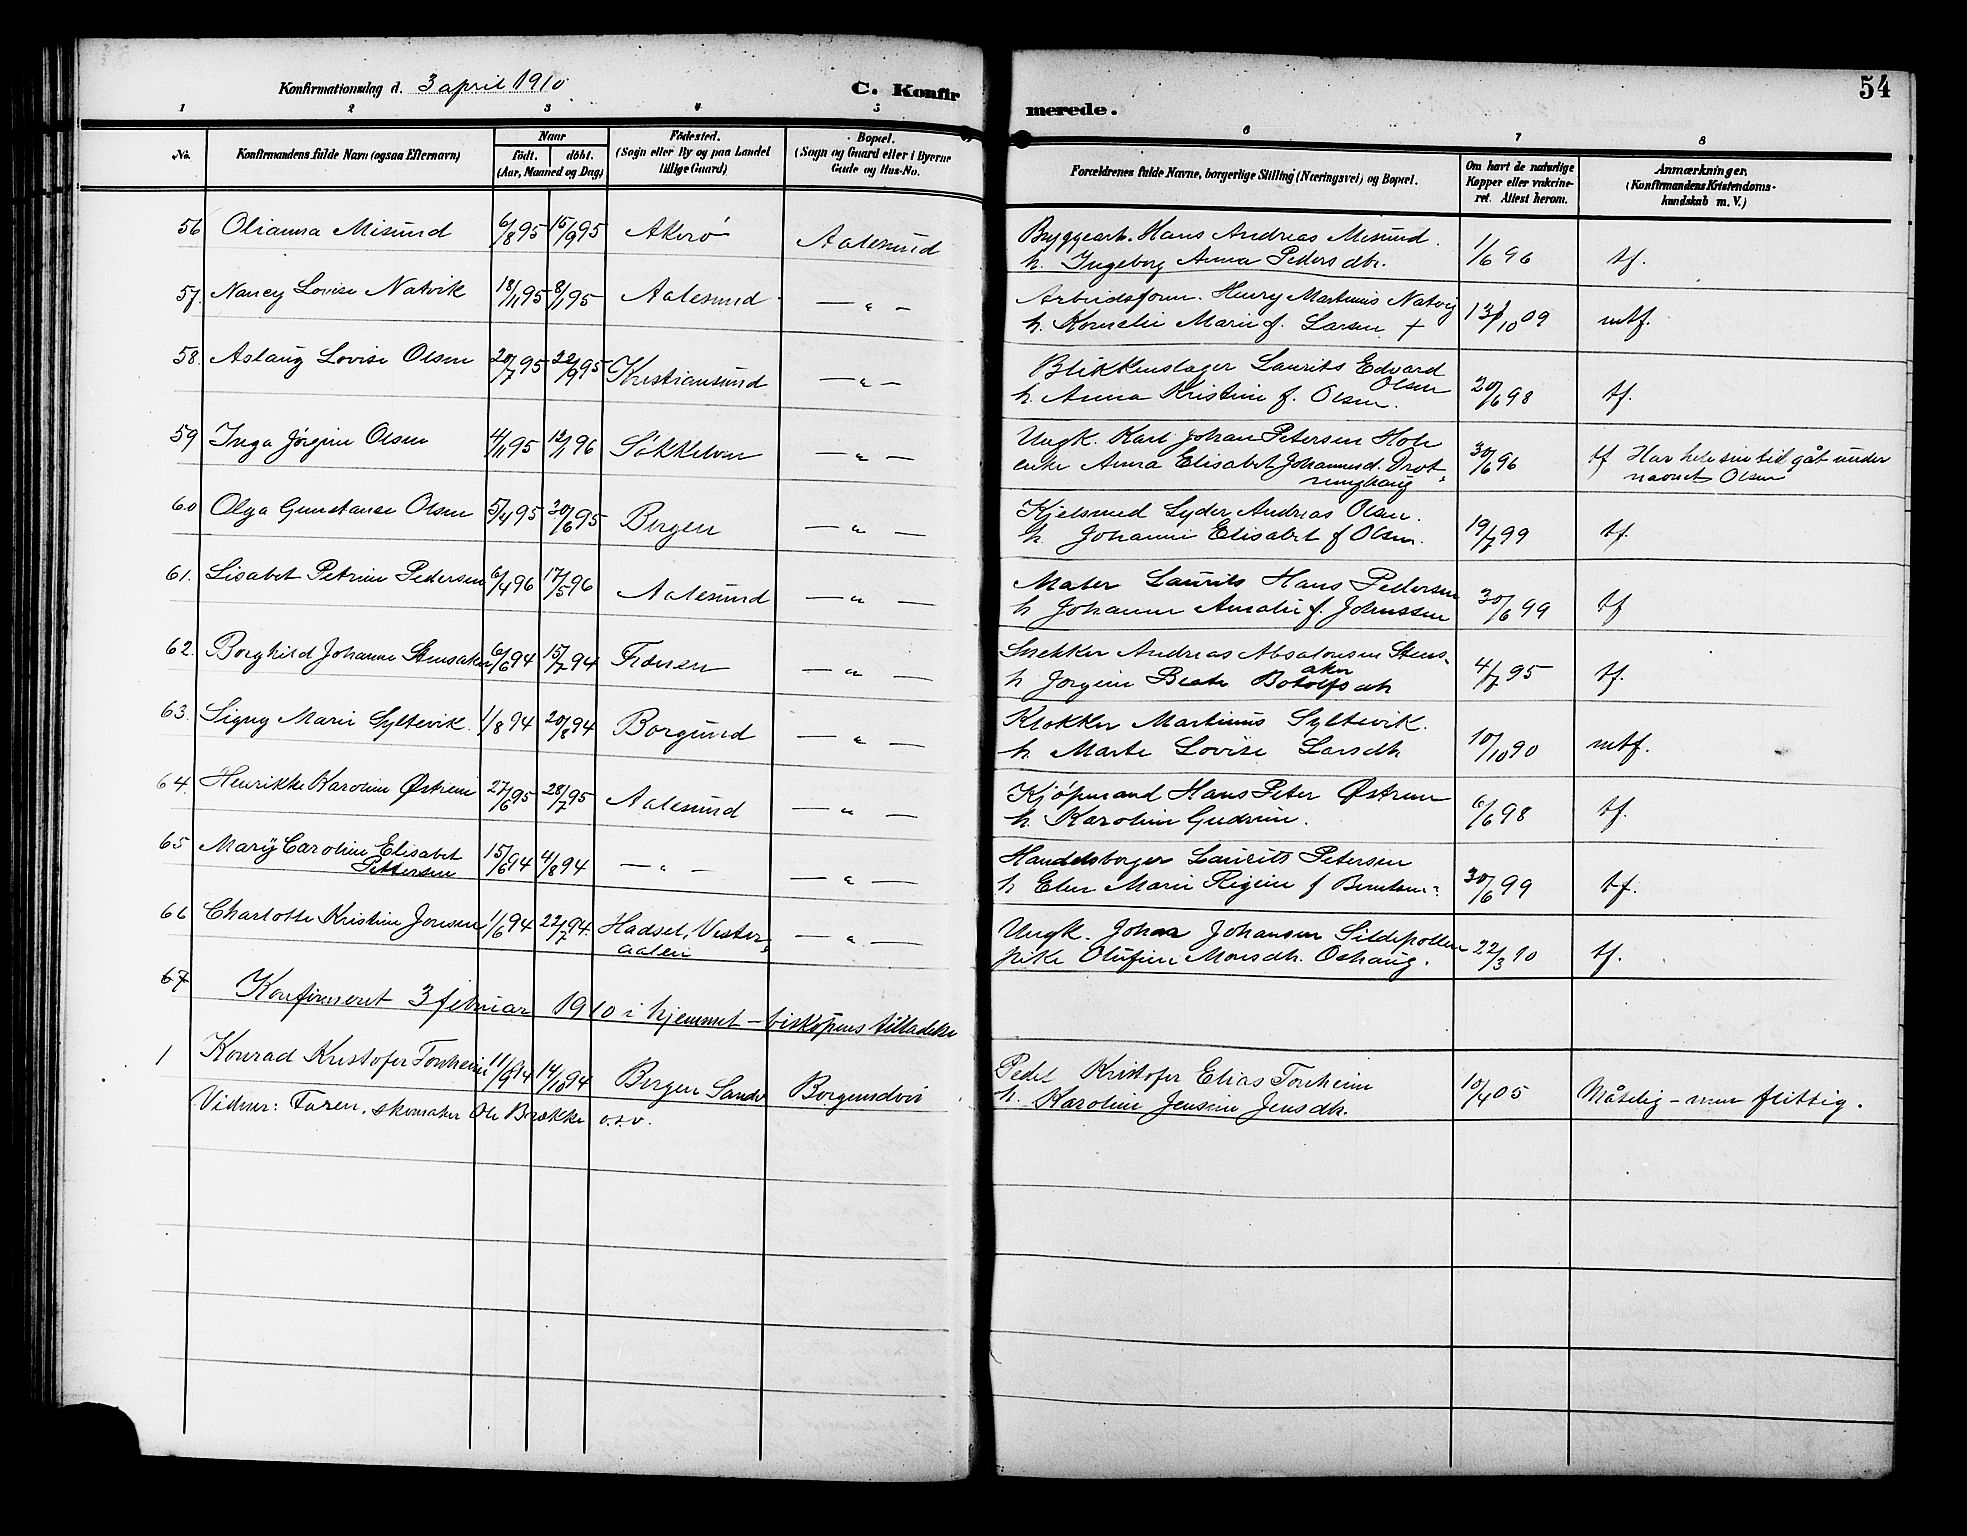 54
Konfirmationsdag d. 3 april 1910
C. Konfirmerede.
1 2 3 4 5 6 7 8
No.
Konfirmandens fulde Navn (ogsaa Efternavn)
Naar
født. døbt.
(Aar, Maaned og Dag)
Fødested.
(Sogn eller By og paa Landet
tillige Gaard)
Bopæl.
(Sogn og Gaard eller i Byerne
Gade og Hus-No.
Forældrenes fulde Navne, borgerlige Stilling (Næringsvei) og Bopæl.
Om havt de naturlige
Kopper eller vakcine-
ret. Attest herom.
Anmærkninger.
(Konfirmandens Kristendoms-
kundskab m. V.)
56 Olianna Misund 6/8 95 15/9 95 Akerø Aalesund
Byggearb. Hans Andreas Misund.
h. Ingeborg Anna Pedersdtr. 1/6 96 tf.
57. Nancy Lovise Natvik 18/11 95 8/1 95 Aalesund — " —
Arbeidsform. Henry Martinus Natvig
h. Kornelie Marie f. Larsen + 13/10 09 mtf.
58. Aslaug Lovise Olsen 20/7 95 22/9 95 Kristiansund — " —
Blikkenslager Laurits Edvard
Olsen
h. Anna Kristine f. Olsen. 20/6 98 tf.
59 Inga Jørgine Olsen 4/11 95 12/1 96 Søkkelven — " —
Ungk. Karl Johan Petersen Hole
enke Anna Elisabet Johannesd. Drot-
ninghaug 30/6 96 tf Har hele sin tid gåt under
navnet Olsen
60 Olga Gunstanse Olsen 5/4 95 30/6 95 Bergen — " —
Kjelsmed Lyder Andreas Olsen.
h. Johanne Elisabet f Olsen. 19/7 99 tf.
61. Lisabet Petrine Pedersen 6/4 96 17/5 96 Aalesund — " —
Maler Laurits Hans Pedersen
h Johanne Amalie f. Johnssen 30/6 99 tf
62. Borghild Johanne Stensaker 6/6 94 15/7 94 Fræna — " —
Snekker Andreas Absalonsen Stens-
aker
h Jørgine Beate Botolfsdtr 4/7 95 tf.
63. Signy Marie Syltevik 1/8 94 20/8 94 Borgund — " —
Klokker Martinus Syltevik.
h. Marte Lovise Larsdtr 10/10 90 mtf.
64. Henrikke Karoline Østrem 27/6 95 28/7 95 Aalesund — " —
Kjøpmand Hans Peter Østrem
h. Karoline Gudrun. 6/6 98 tf.
65 Mary Caroline Elisabet
Pettersen 15/6 94 4/8 94 — " — — " —
Handelsborger Laurits Petersen
h Elen Marie Regine f 30/6 99 tf.
66 Charlotte Kristine Jonsen 1/6 94 22/7 94. Hadsel, Vester-
aalen — " —
Ungk. Johan Johansen Sildepollen
pike Olufine Monsdtr. Oshaug. 22/3 10 tf.
67 Konfirmeret 3 februar 1910 i hjemmet – biskopens tilladelse
1 Konrad Kristofer Tonheim 11/9 94 14/10 94 Bergen Sandv Borgensdvir
Pedel Kristofer Elias Tonheim
h. Karoline Jensine Jensdtr. 10/4 05 Måtelig – men flittig.
Vidner: Faren, skomaker Ole Brække o.s.v.